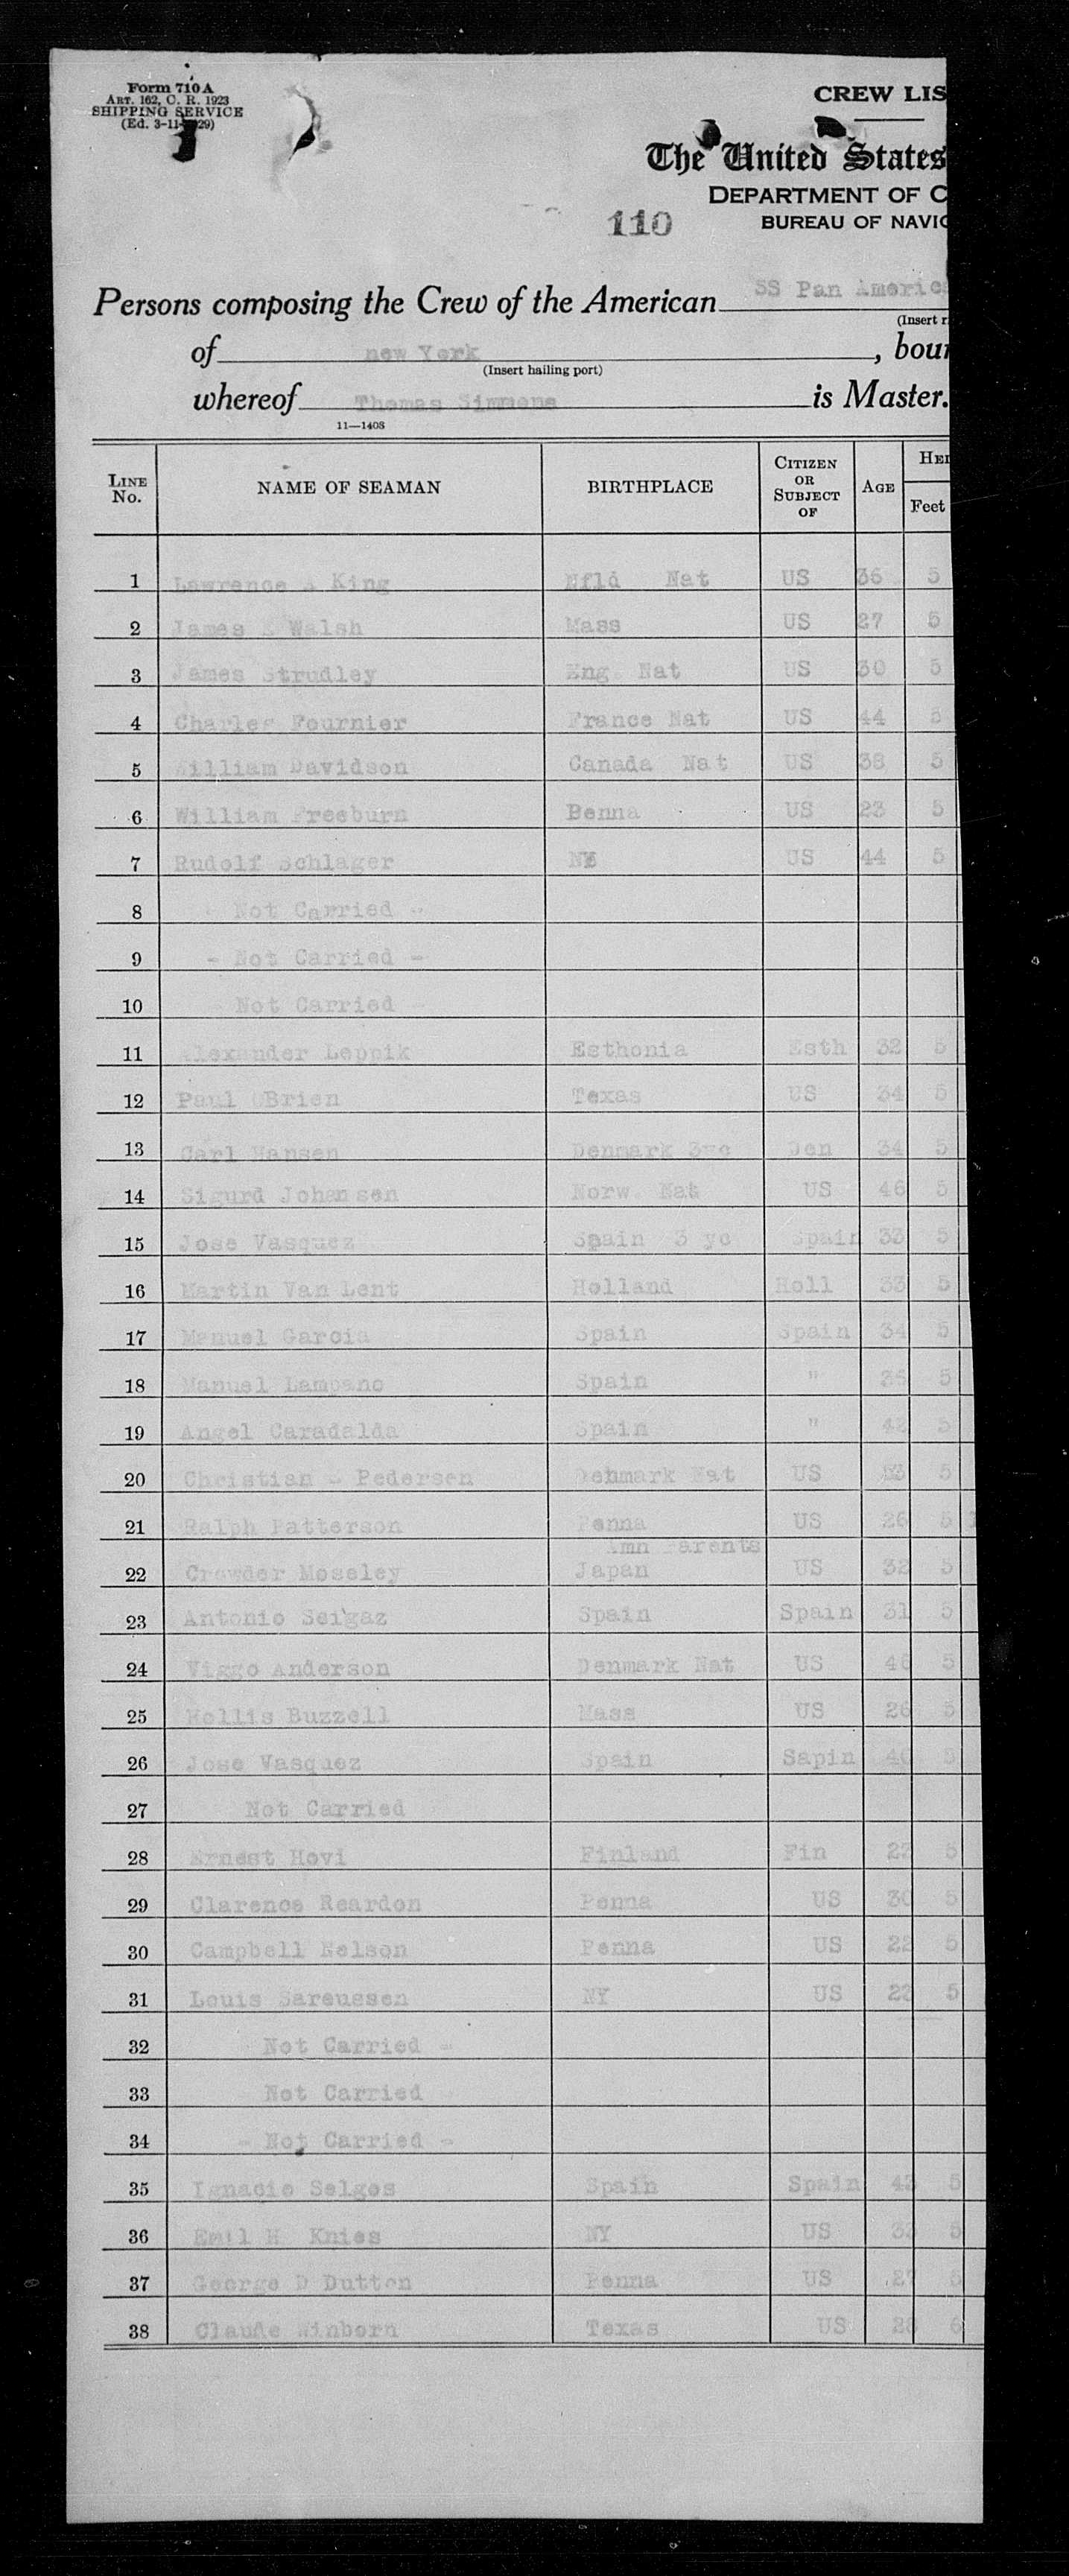 Form 710 A
ART. 162, C. R. 1923
SHIPPING SERVICE
(Ed. 3-11- 29)
CREW LIS
The United States
DEPARTMENT OF C
110 BUREAU OF NAVIG
Persons composing the Crew of the American SS Pan America
(Insert r
of new York , bour
(Insert hailing port)
whereof Thomas Simmons is Master.
11—1408
LINE No. NAME OF SEAMAN BIRTHPLACE CITIZEN OR SUBJECT OF AGE HEI
Feet
1 Lawrence A King Nfld Nat US 36 5
2 James Walsh Mass US 27 5
3 James Strudley Eng. Nat US 30 5
4 Charles Fournier France Nat US 44 5
5 William Davidson Canada Nat US 38 5
6 William Freeburn Benna US 23 5
7 Rudolf Schlager NY US 44 5
8 - Not Carried -
9 - Not Carried -
10 - Not Carried -
11 Alexander Leppik Esthonia Esth 32 5
12 Paul OBrien Texas US 34 5
13 Carl Hansen Denmark Den 34 5
14 Sigurd Johansen Norw. Nat US 46 5
15 Jose Vasquez Spain 3 yc Spain 33 5
16 Martin Van Lent Holland Holl 33 5
17 Manuel Garcia Spain Spain 34 5
18 Manuel Lampano Spain " 5
19 Angel Caradalda Spain " 5
20 Christian Pedersen Denmark Nat US 5
21 Ralph Patterson Penna US 26 5
Amn Parents
22 Crowder Moseley Japan US 32 5
23 Antonio Seigaz Spain Spain 31 5
24 Viggo Anderson Denmark Nat US 5
25 Hollis Buzzell Mass US 26 5
26 Jose Vasquez Spain Sapin 40 5
27 Not Carried
28 Ernest Hovi Finland Fin 5
29 Clarence Reardon Penna US 30 5
30 Campbell Nelson Penna US 22 5
31 Louis US 22 5
32 Not Carried -
33 Not Carried -
34 - Not Carried -
35 Ignacio Selgos Spain Spain 43 5
36 Emil H. Knies NY US 5
37 George D Dutton Penna US 27
38 Claude Winborn Texas US 28 6